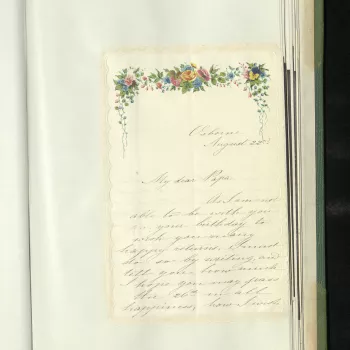 Osborne
August 22d
My dear Papa
As I am un
able to be with you
on your birthday to
wish you many
happy returns I must
do so by writing and
tell you how much
I hope you may pass
the 26th in all
happiness, how I wish